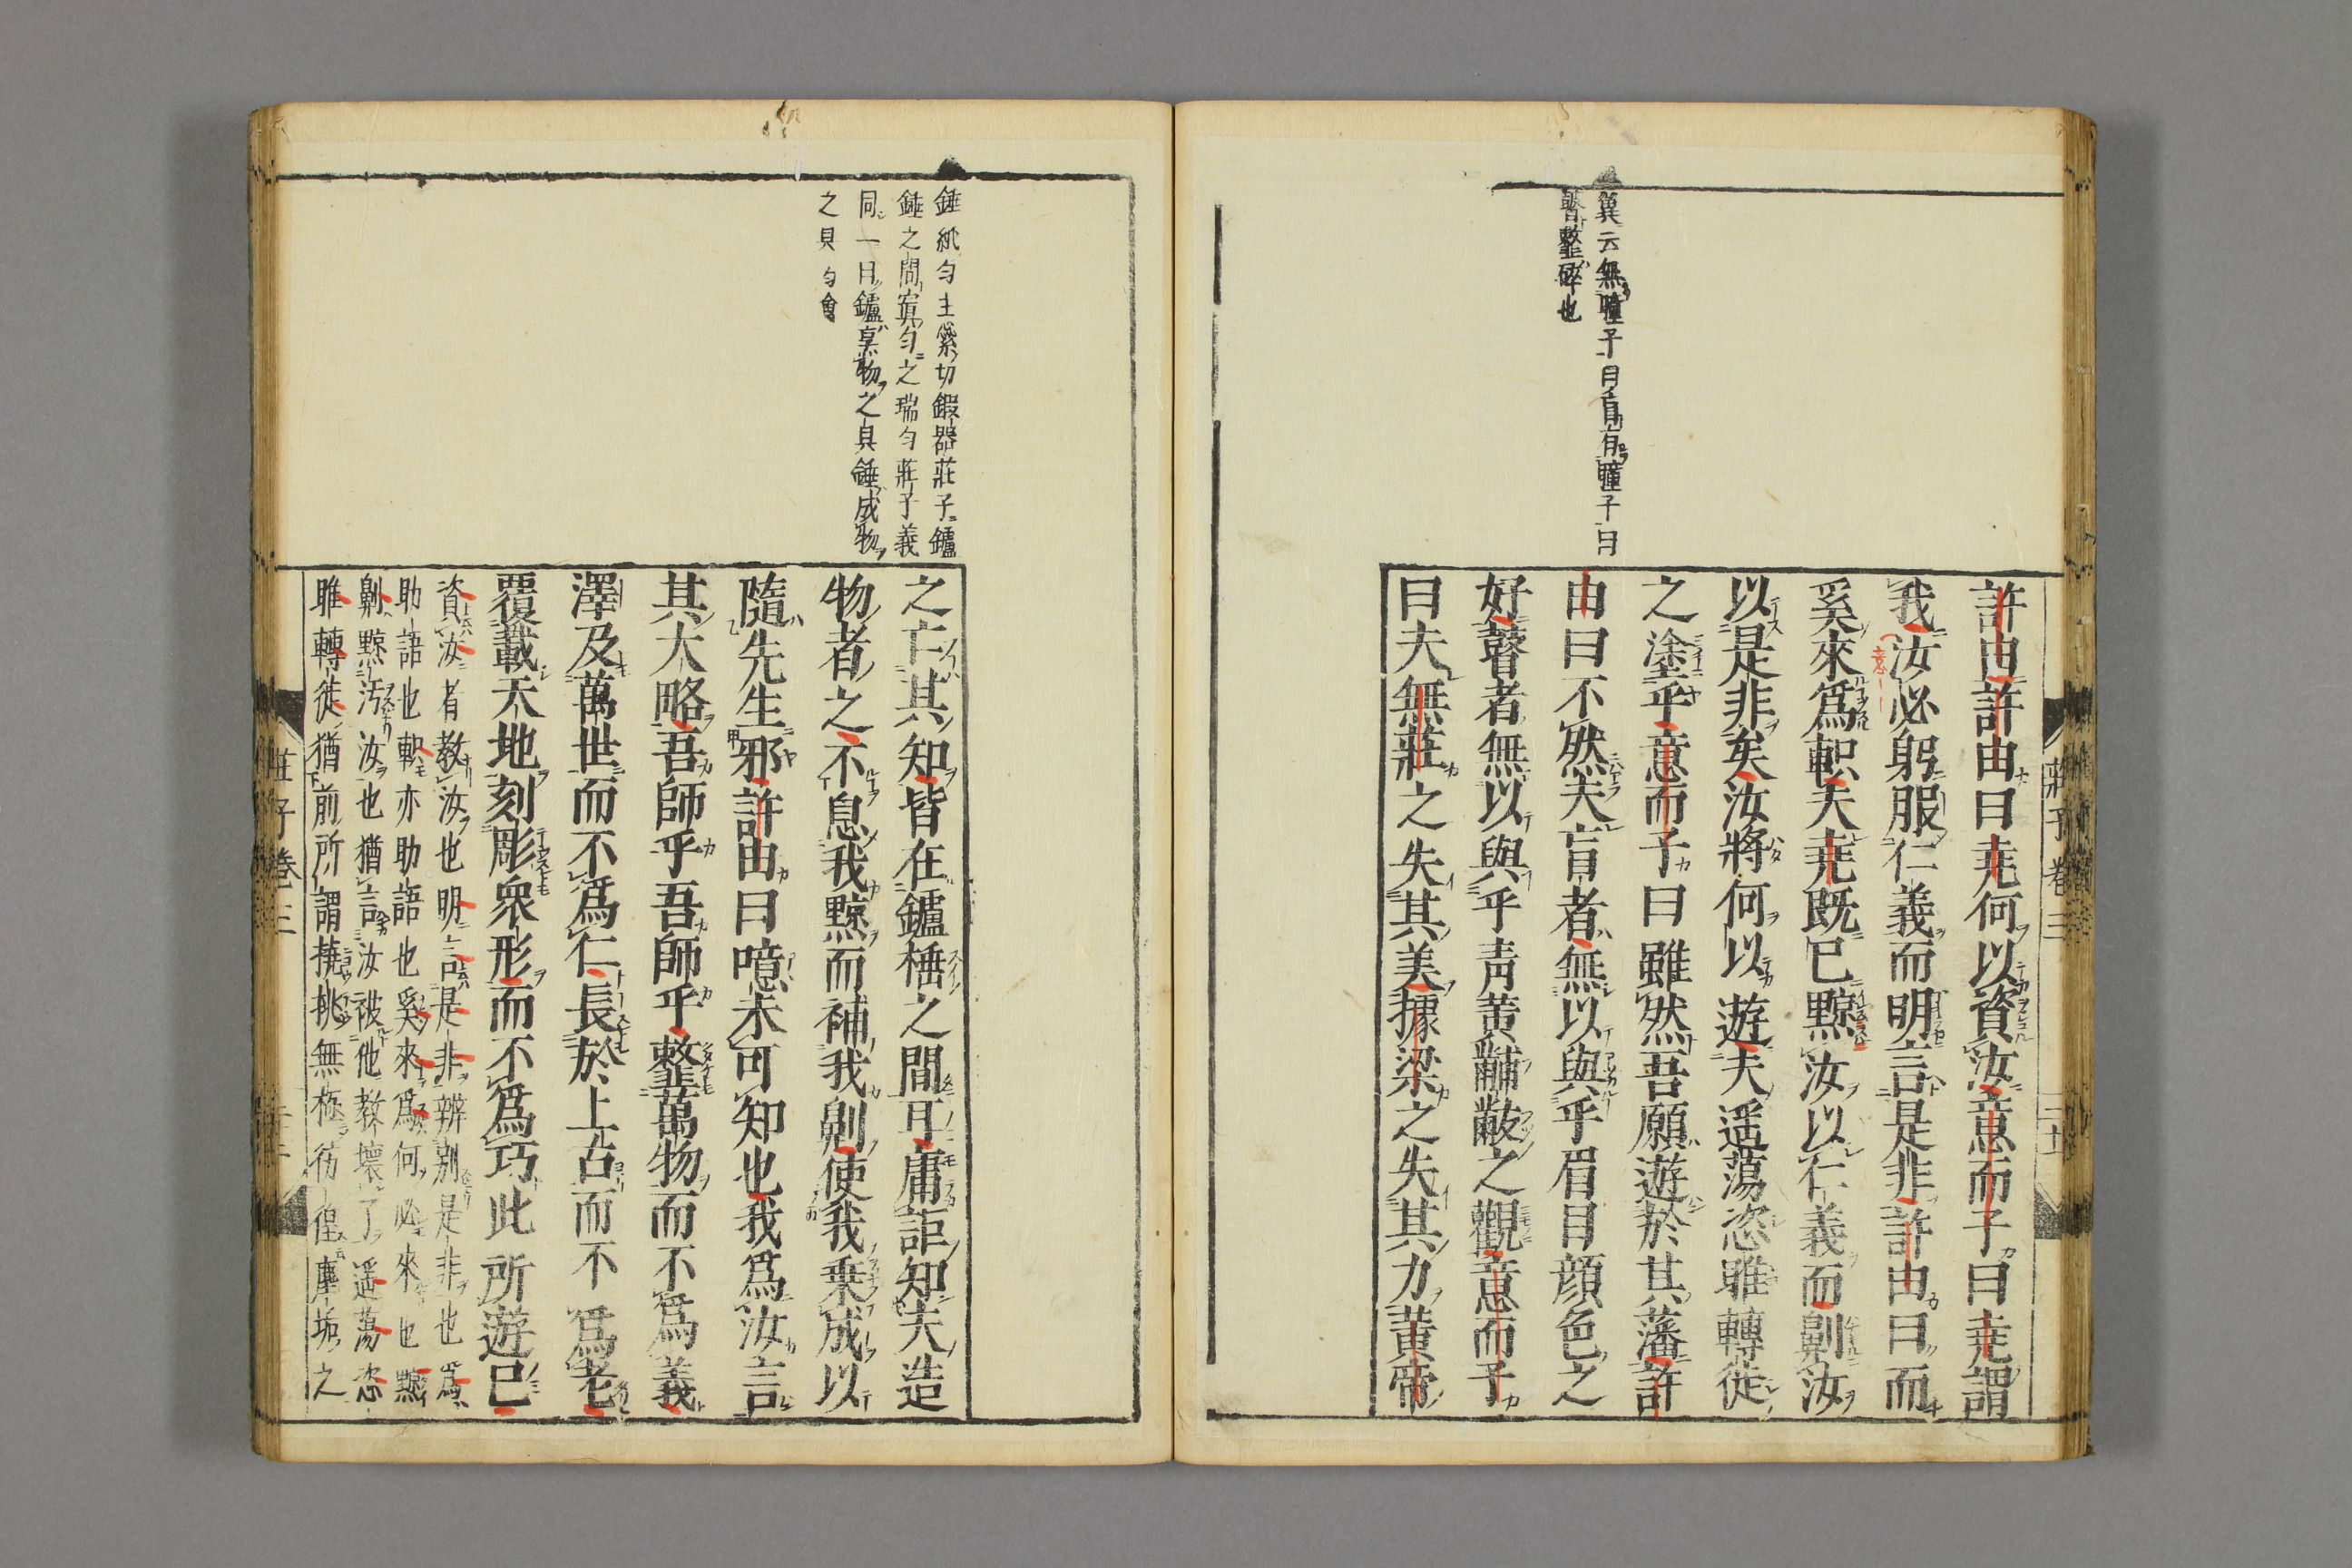 翼云無瞳子曰盲有瞳子曰
瞽韲碎也
許由許由曰堯何以資汝意而子曰堯謂
我汝必躬服仁義而明言是非許由曰而
奚來爲軹夫堯既已黥汝以仁義而劓汝
以是非矣汝將何以遊夫遥蕩恣睢轉徙
之塗乎意而子曰雖然吾願遊於其藩許
由曰不然夫盲者無以與乎眉目顔色之
好瞽者無以與乎青黄黼黻之觀意而子
曰夫無莊之失其美據梁之失其力黄帝
莊子卷三
錘紙勻主縈切鍛器莊子鑪
錘之間寘勻之瑞勻莊子義
同一曰鑪烹物之具錘成物
之具勻會
之亡其知皆在鑪棰之間耳庸詎知夫造
物者之不息我黥而補我劓使我乗成以
隨先生邪許由曰噫未可知也我爲汝言
其大略吾師乎吾師乎韲萬物而不爲義
澤及萬世而不爲仁長於上古而不爲老
覆載天地刻彫衆形而不爲巧此所遊已
資汝者教汝也明言是非辨别是非也爲
助語也軹亦助語也奚來爲何必來也黥
劓黥汚汝也猶言汝被他教壞了遥蕩恣
睢轉徙猶前所謂撓挑無極彷徨塵垢之
莊子卷三